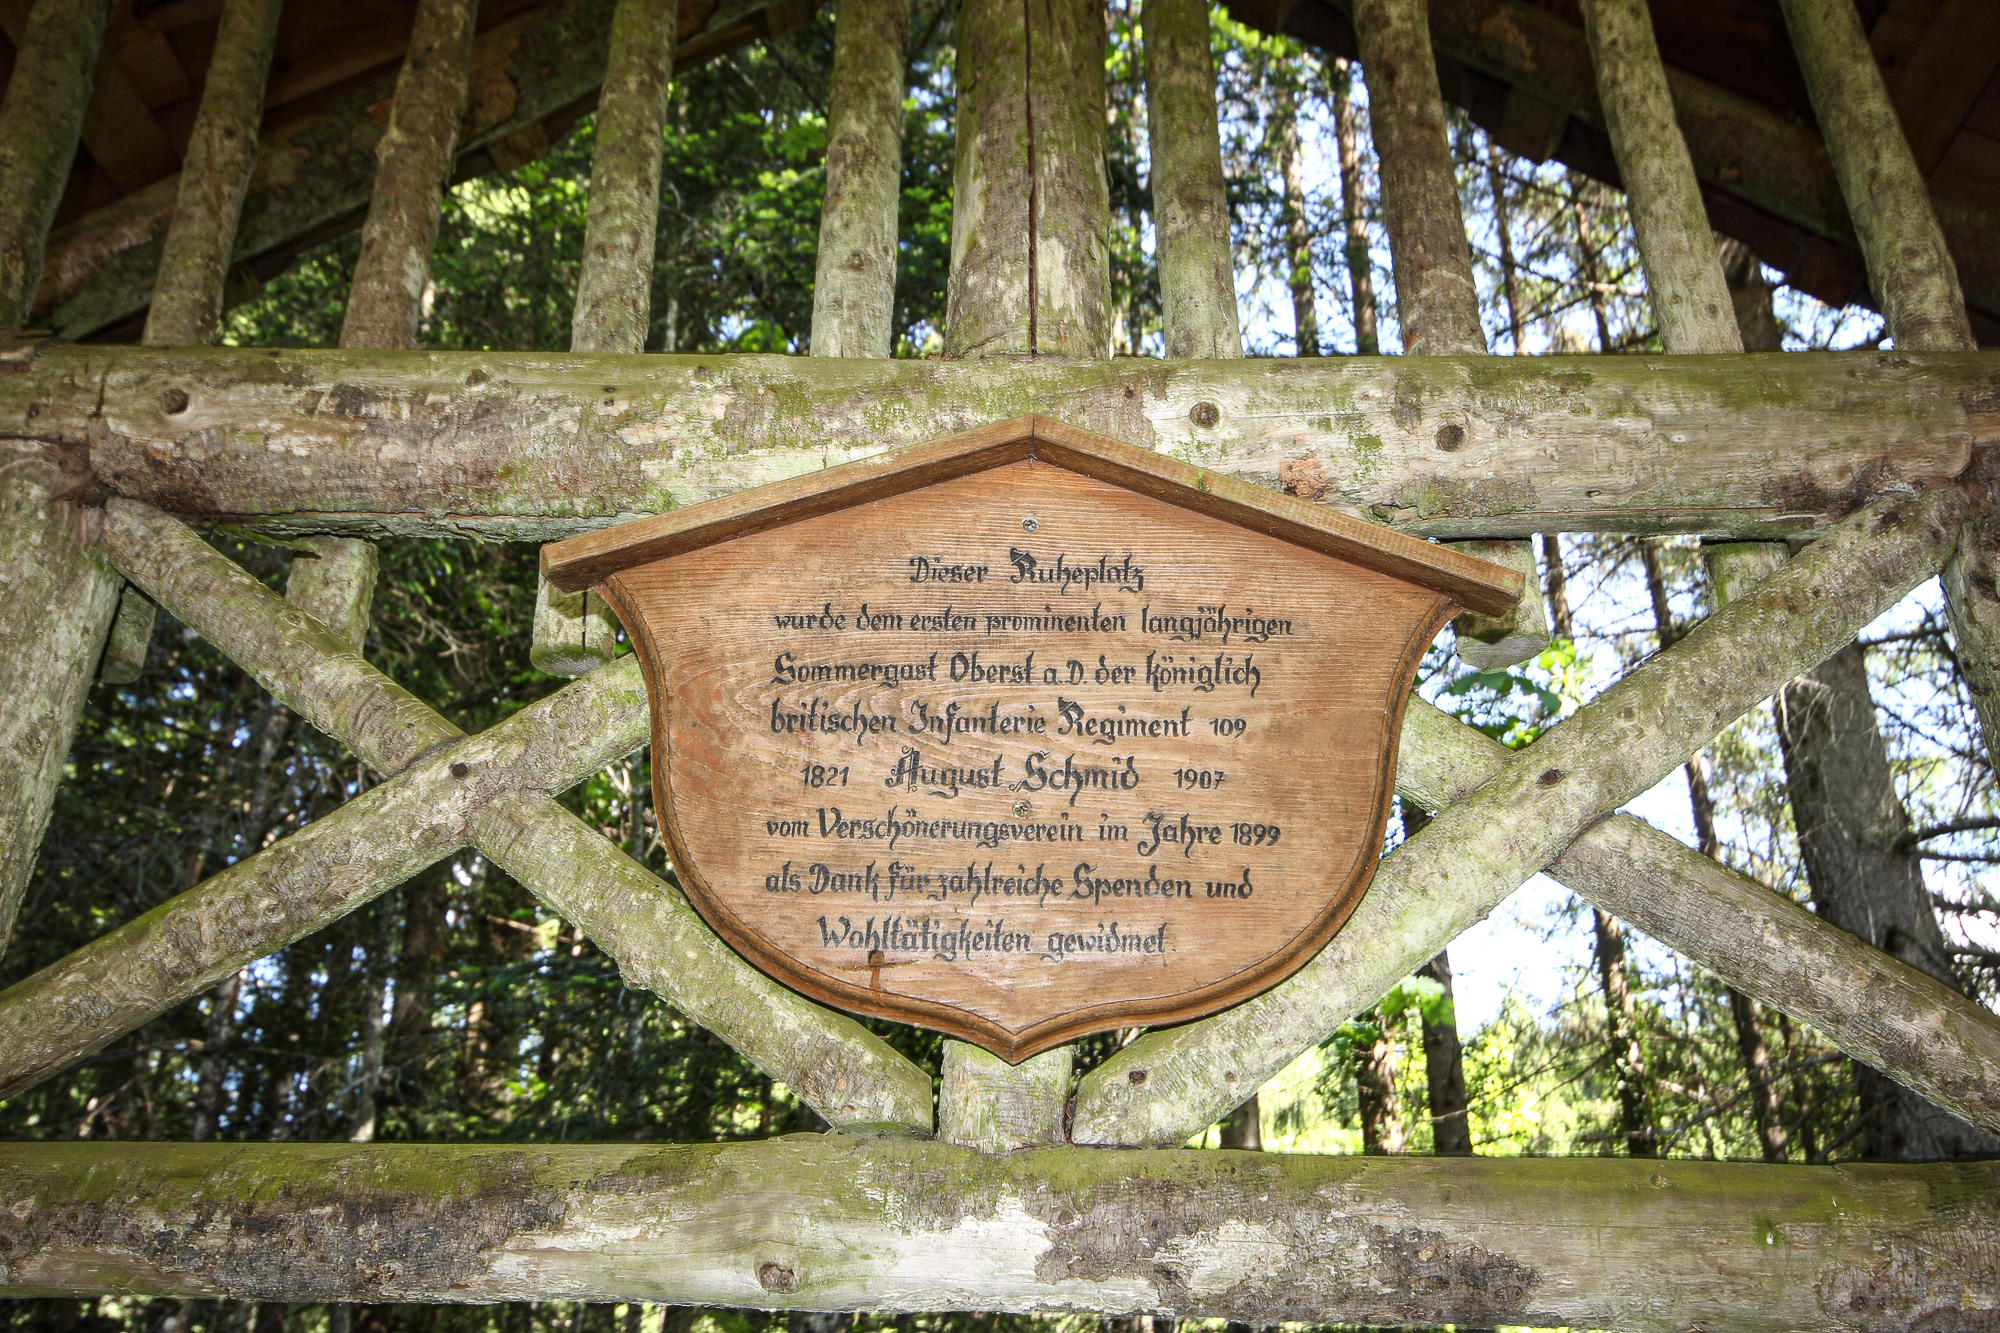 Dieser Ruheplatz
wurde dem ersten prominenten langjährigen
Sommergast Oberst a.D. der königlich
britischen Infanterie Regiment 109
1821 August Schmid 1907
vom Verschönerungsverein im Jahre 1899
als Dank für zahlreiche Spenden und
Wohltätigkeiten gewidmet.